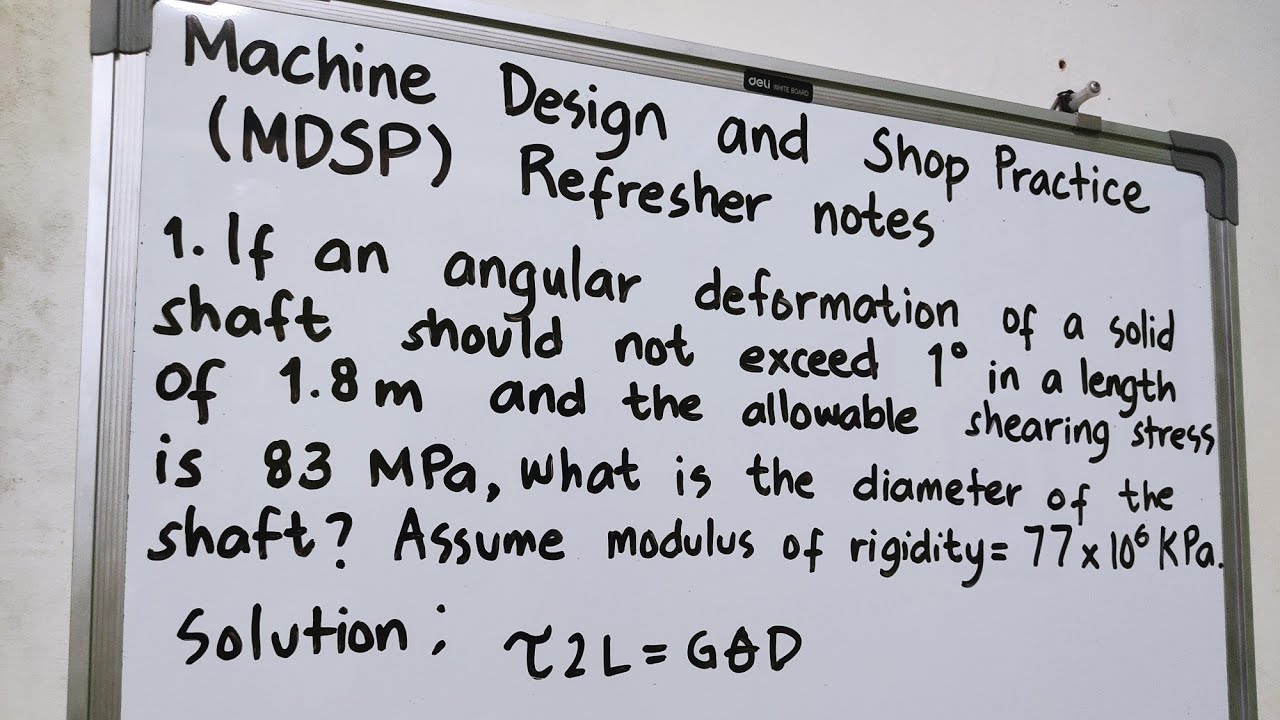 deli WHITE BOARD
Machine Design and Shop Practice
(MDSP) Refresher notes
1. If an angular deformation of a solid
shaft should not exceed 1° in a length
of 1.8 m and the allowable shearing stress
is 83 MPa, what is the diameter of the
shaft? Assume modulus of rigidity = 77 x 10⁶ KPa.
Solution : τ2L = GθD